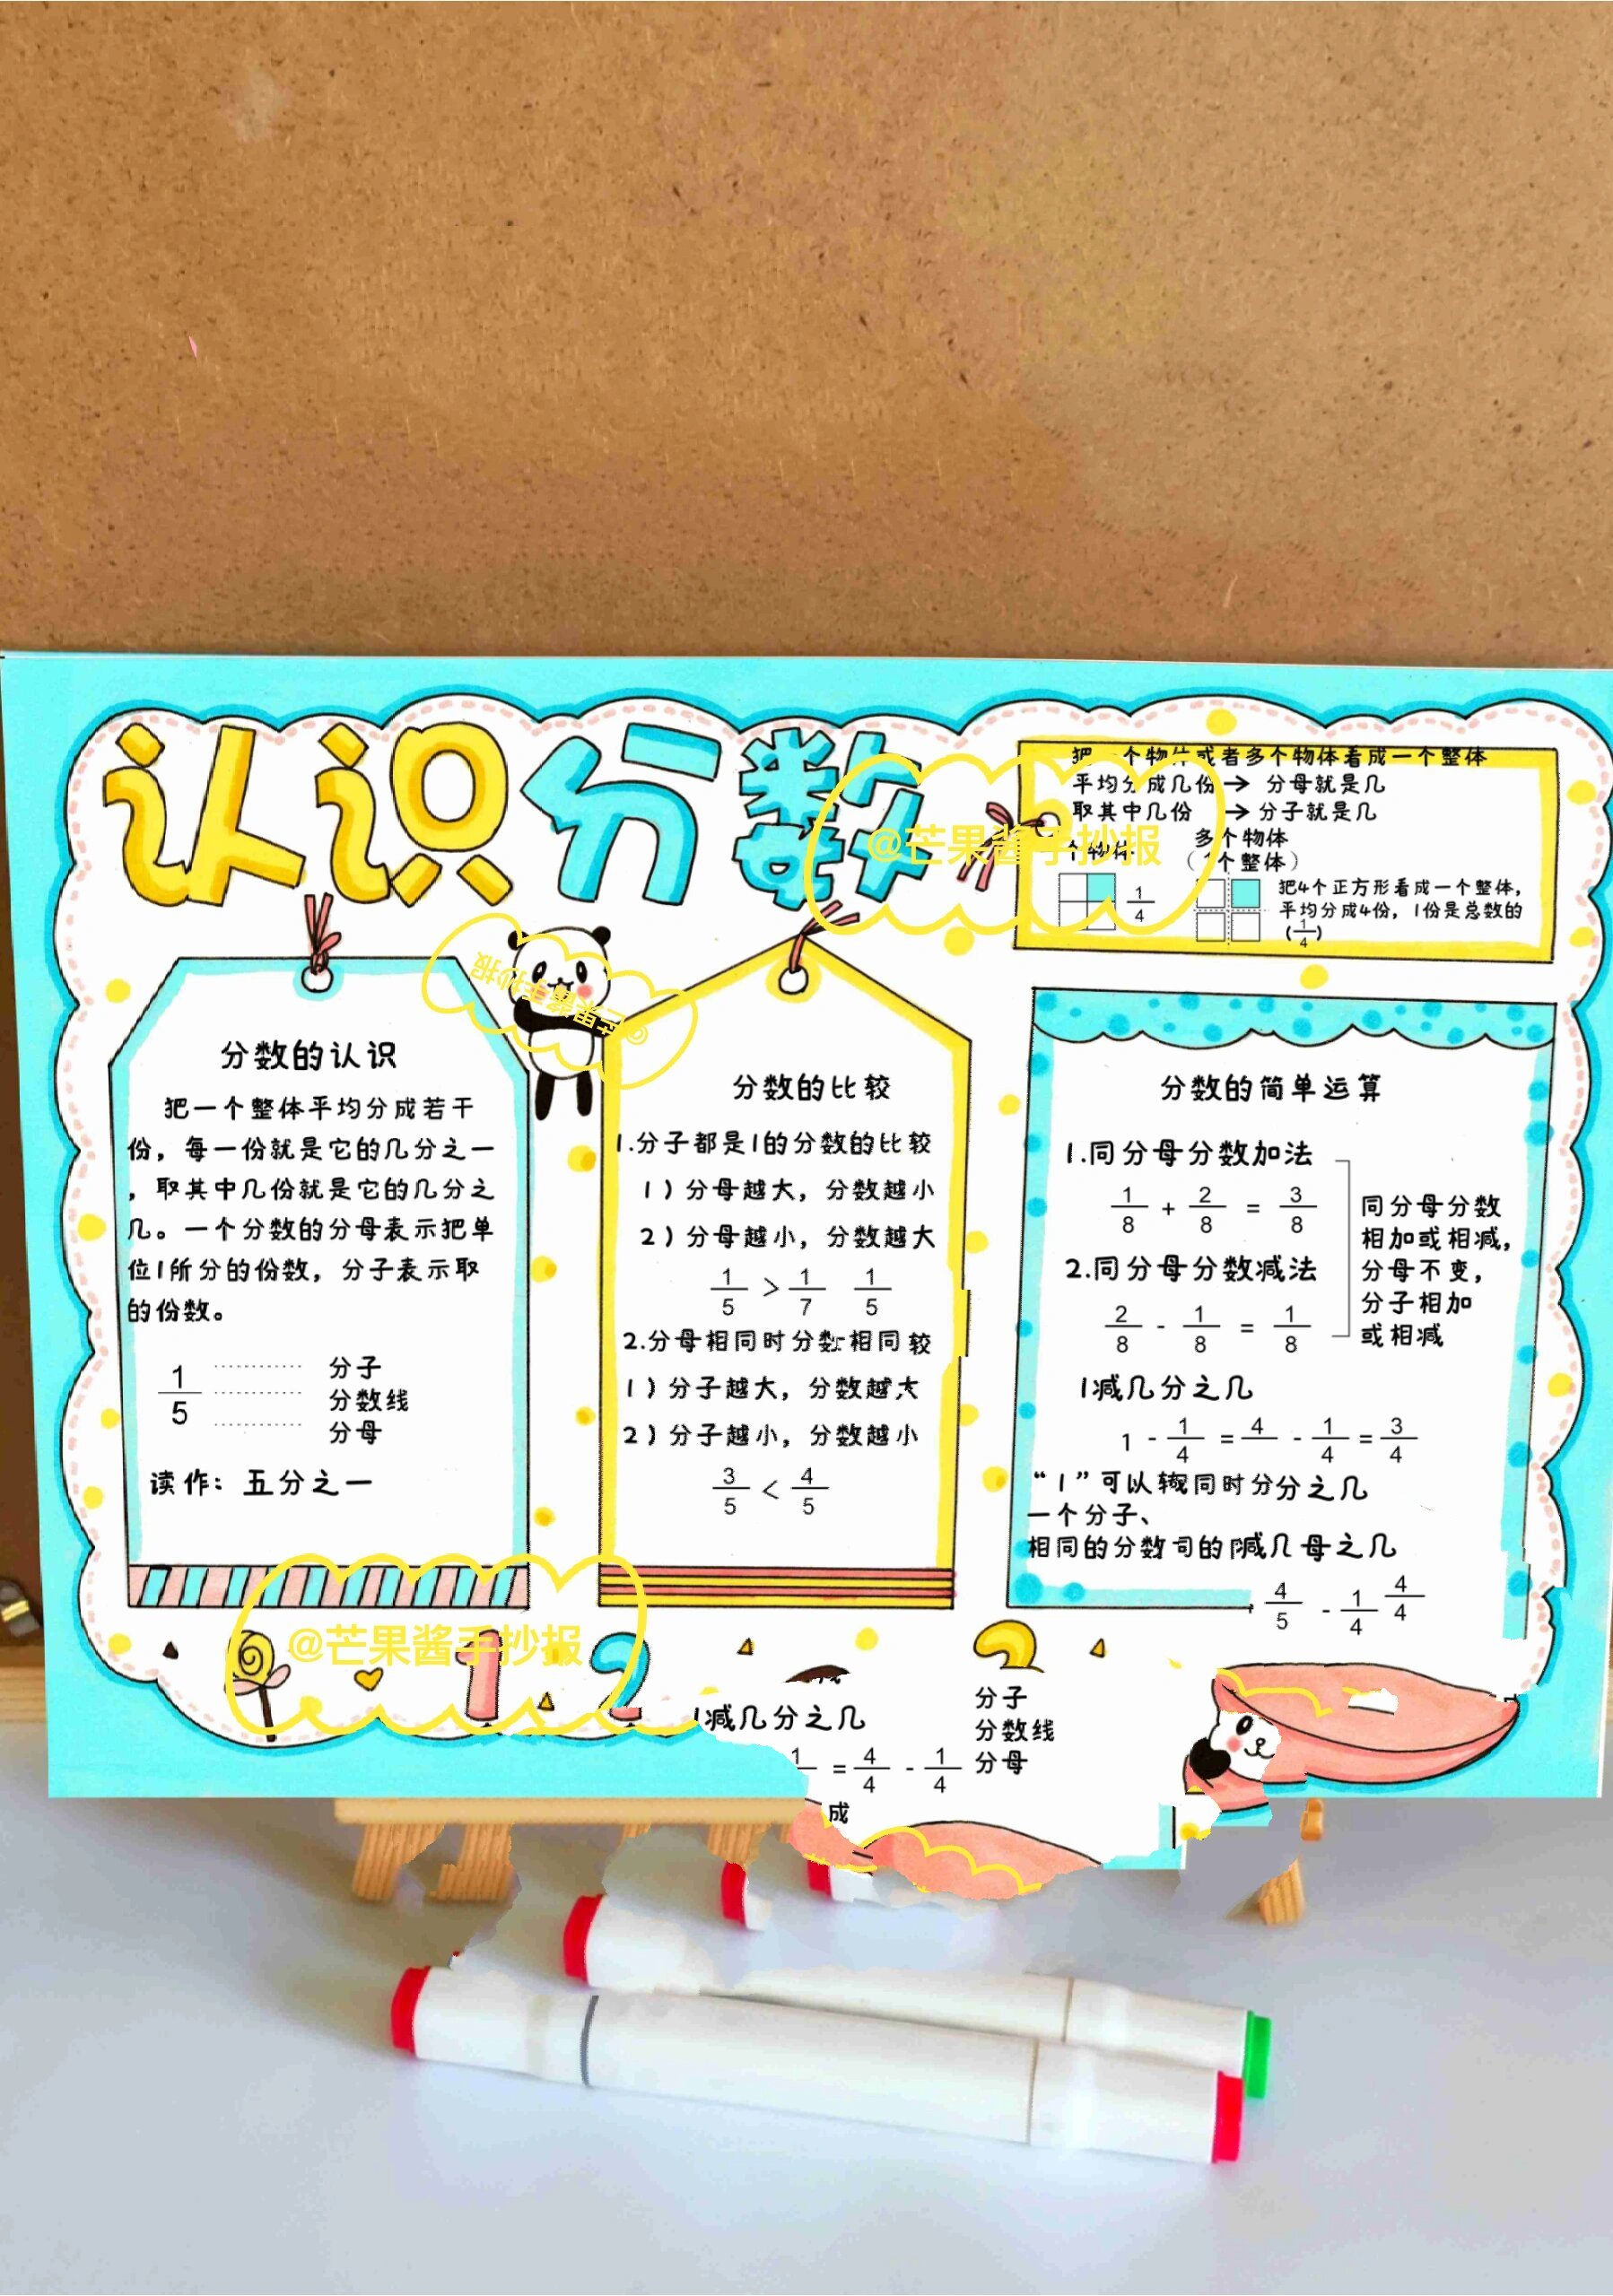 认识分数
把一个物体或者多个物体看成一个整体
平均分成几份→ 分母就是几
取其中几份 →分子就是几
个物体
多个物体
（1个整体）
1/4
把4个正方形看成一个整体，
平均分成4份，1份是总数的
(1/4)
@芒果酱手抄报
@芒果酱手抄报
分数的认识
把一个整体平均分成若干
份，每一份就是它的几分之一
，取其中几份就是它的几分之
几。一个分数的分母表示把单
位1所分的份数，分子表示取
的份数。
1/5
分子
分数线
分母
读作：五分之一
分数的比较
1.分子都是1的分数的比较
1）分母越大，分数越小
2）分母越小，分数越大
1/5 > 1/7 1/5
2.分母相同时分数相同较
1）分子越大，分数越大
2）分子越小，分数越小
3/5 < 4/5
分数的简单运算
1.同分母分数加法
1/8 + 2/8 = 3/8
2.同分母分数减法
2/8 - 1/8 = 1/8
同分母分数
相加或相减，
分母不变，
分子相加
或相减
1减几分之几
1 - 1/4 = 4 - 1/4 = 3/4
“1”可以转同时分分之几
一个分子、
相同的分数司的减几母之几
4/5 - 1/4 4/4
@芒果酱手抄报
1 2
1减几分之几
1 = 4/4 - 1/4
成
分子
分数线
分母